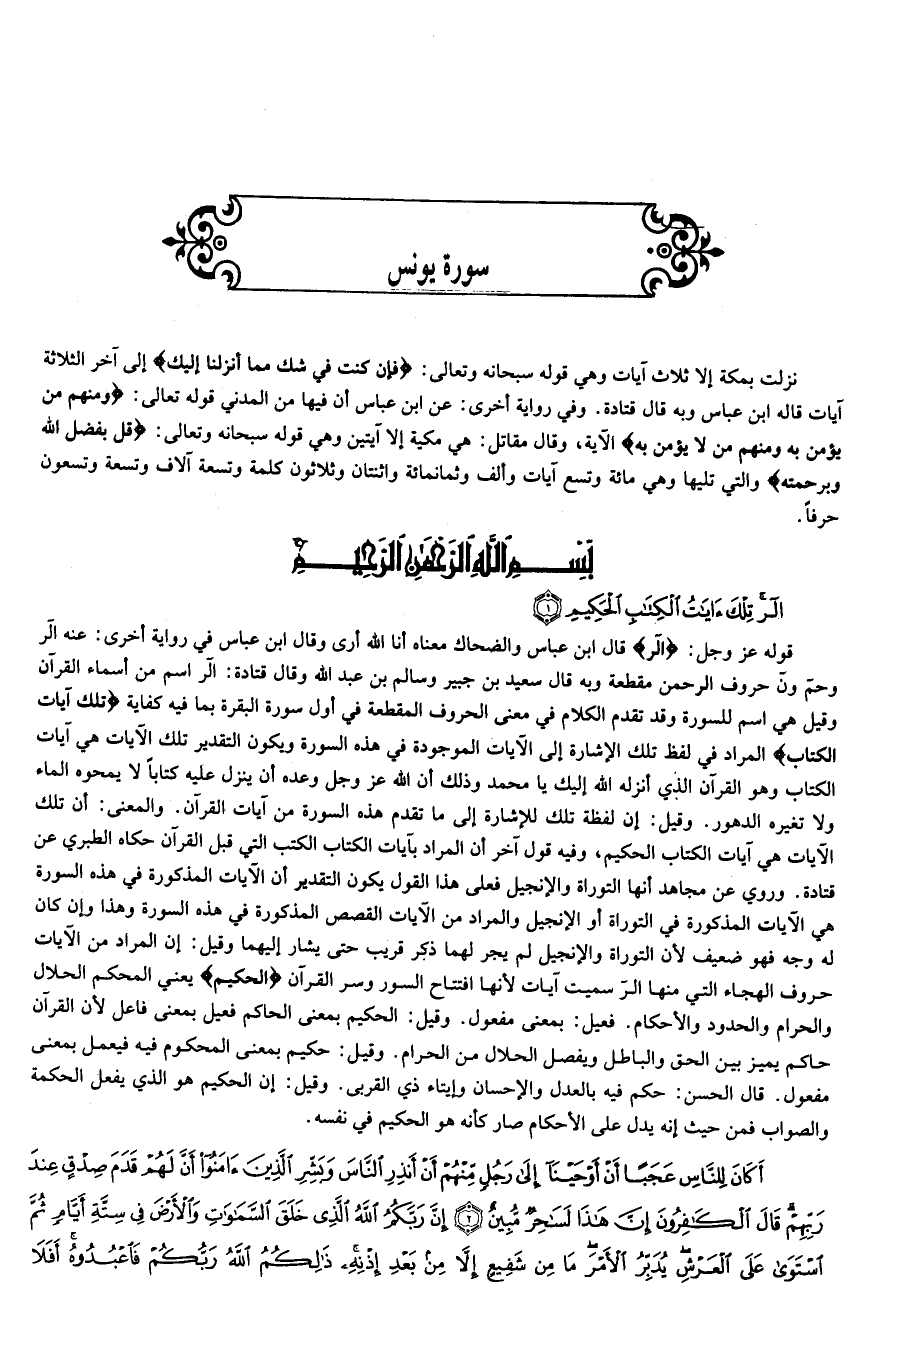 سورة يونس
نزلت بمكة إلا ثلاث آيات وهي قوله سبحانه وتعالى: ﴿فإن كنت في شك مما أنزلنا إليك﴾ إلى آخر الثلاثة
آيات قاله ابن عباس وبه قال قتادة. وفي رواية أخرى: عن ابن عباس أن فيها من المدني قوله تعالى: ﴿ومنهم من
يؤمن به ومنهم من لا يؤمن به﴾ الآية، وقال مقاتل: هي مكية إلا آيتين وهي قوله سبحانه وتعالى: ﴿قل بفضل الله
وبرحمته﴾ والتي تليها وهي مائة وتسع آيات وألف وثمانمائة واثنتان وثلاثون كلمة وتسعة آلاف وتسعة وتسعون
حرفاً.
بِسْمِ اللَّهِ الرَّحْمَٰنِ الرَّحِيمِ
الٓرۚ تِلْكَ ءَايَٰتُ ٱلْكِتَٰبِ ٱلْحَكِيمِ ﴿١﴾
قوله عز وجل: ﴿الٓر﴾ قال ابن عباس والضحاك معناه أنا الله أرى وقال ابن عباس في رواية أخرى: عنه الٓر
وحمٓ ونٓ حروف الرحمن مقطعة وبه قال سعيد بن جبير وسالم بن عبد الله وقال قتادة: الٓر اسم من أسماء القرآن
وقيل هي اسم للسورة وقد تقدم الكلام في معنى الحروف المقطعة في أول سورة البقرة بما فيه كفاية ﴿تلك آيات
الكتاب﴾ المراد في لفظ تلك الإشارة إلى الآيات الموجودة في هذه السورة ويكون التقدير تلك الآيات هي آيات
الكتاب وهو القرآن الذي أنزله الله إليك يا محمد وذلك أن الله عز وجل وعده أن ينزل عليه كتاباً لا يمحوه الماء
ولا تغيره الدهور. وقيل: إن لفظة تلك للإشارة إلى ما تقدم هذه السورة من آيات القرآن. والمعنى: أن تلك
الآيات هي آيات الكتاب الحكيم، وفيه قول آخر أن المراد بآيات الكتاب الكتب التي قبل القرآن حكاه الطبري عن
قتادة. وروي عن مجاهد أنها التوراة والإنجيل فعلى هذا القول يكون التقدير أن الآيات المذكورة في هذه السورة
هي الآيات المذكورة في التوراة أو الإنجيل والمراد من الآيات القصص المذكورة في هذه السورة وهذا وإن كان
له وجه فهو ضعيف لأن التوراة والإنجيل لم يجر لهما ذكر قريب حتى يشار إليهما وقيل: إن المراد من الآيات
حروف الهجاء التي منها الرٓ سميت آيات لأنها افتتاح السور وسر القرآن ﴿الحكيم﴾ يعني المحكم الحلال
والحرام والحدود والأحكام. فعيل: بمعنى مفعول. وقيل: الحكيم بمعنى الحاكم فعيل بمعنى فاعل لأن القرآن
حاكم يميز بين الحق والباطل ويفصل الحلال من الحرام. وقيل: حكيم بمعنى المحكوم فيه فيعمل بمعنى
مفعول. قال الحسن: حكم فيه بالعدل والإحسان وإيتاء ذي القربى. وقيل: إن الحكيم هو الذي يفعل الحكمة
والصواب فمن حيث إنه يدل على الأحكام صار كأنه هو الحكيم في نفسه.
أَكَانَ لِلنَّاسِ عَجَبًا أَنْ أَوْحَيْنَآ إِلَىٰ رَجُلٍ مِّنْهُمْ أَنْ أَنذِرِ ٱلنَّاسَ وَبَشِّرِ ٱلَّذِينَ ءَامَنُوٓا۟ أَنَّ لَهُمْ قَدَمَ صِدْقٍ عِندَ
رَبِّهِمْۗ قَالَ ٱلْكَٰفِرُونَ إِنَّ هَٰذَا لَسَٰحِرٌ مُّبِينٌ ﴿٢﴾ إِنَّ رَبَّكُمُ ٱللَّهُ ٱلَّذِى خَلَقَ ٱلسَّمَٰوَٰتِ وَٱلْأَرْضَ فِى سِتَّةِ أَيَّامٍ ثُمَّ
ٱسْتَوَىٰ عَلَى ٱلْعَرْشِۖ يُدَبِّرُ ٱلْأَمْرَۖ مَا مِن شَفِيعٍ إِلَّا مِنۢ بَعْدِ إِذْنِهِۦۚ ذَٰلِكُمُ ٱللَّهُ رَبُّكُمْ فَٱعْبُدُوهُۚ أَفَلَا